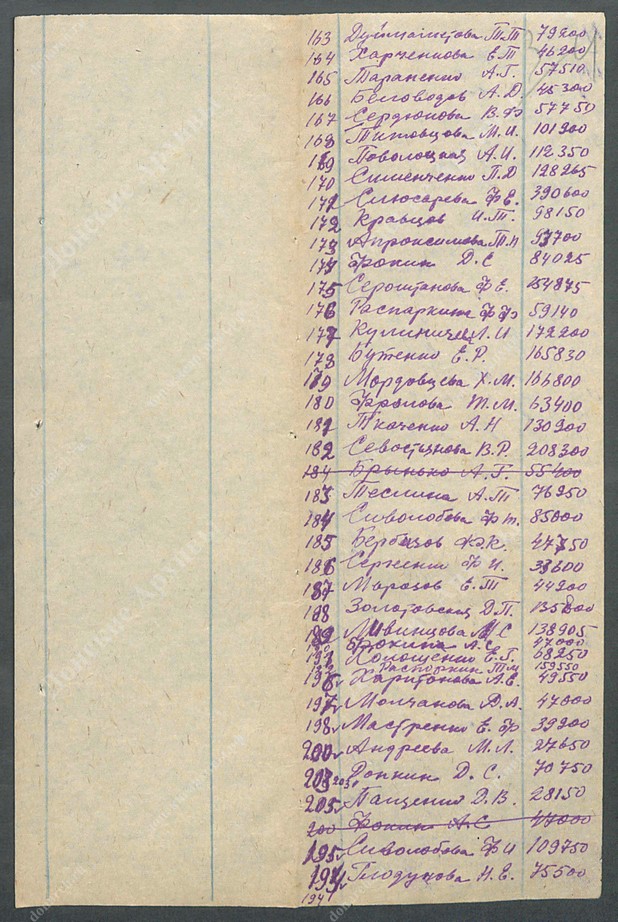 163 Дуймаметова Т.Т 79200
164 Харченкова Е.Т 46200
165 Тараненко А.Г. 57510
166 Беловодов А.Д. 45300
167 Сердюкова В.Ф 57750
168 Титовцова М.И. 101200
169 Поволоцкая А.И. 112350
170 Сименченко П.Д 128265
171 Слюсарева Ф.Е. 390600
172 Кравцов И.Т. 98150
173 Апроксимова Т.П 93700
174 Фокин Д.С 84025
175 Сероштанова Ф.Е. 154875
176 Распаркина Ф.Ф 59140
177 Кулинич Л.И 172200
178 Бутенко Е.Р. 165830
179 Мордовцева Х.М. 166800
180 Фролова Т.М. 63400
181 Ткаченко А.Н 130900
182 Севостьянова В.Р. 208300
184 Брынько А.Г. 55400
183 Теслина А.Т 76950
184 Сиволобова Ф.т. 85000
185 Ф.К. 47750
186 Сергиенко Ф.И. 33600
187 Морозов Е.Т 44200
188 Золотовская Д.П. 135800
189 Ливинцова М.С 138905
Фокина А.С 47000
191 Холощенко Е.Г. 68250
Распоркин Т.М 159550
196 Харитонова А.Е. 49550
197 Молчанова А.А. 47000
198 Мастренко Е.Ф 39900
200 Андреева М.Л. 27650
203 Фомкин Д.С. 70750
205 Пащенко Д.В. 28150
200 Фокин А.С 47000
195 Сиволобова Ф.И 109750
194 Плодунова Н.Е. 75500
194